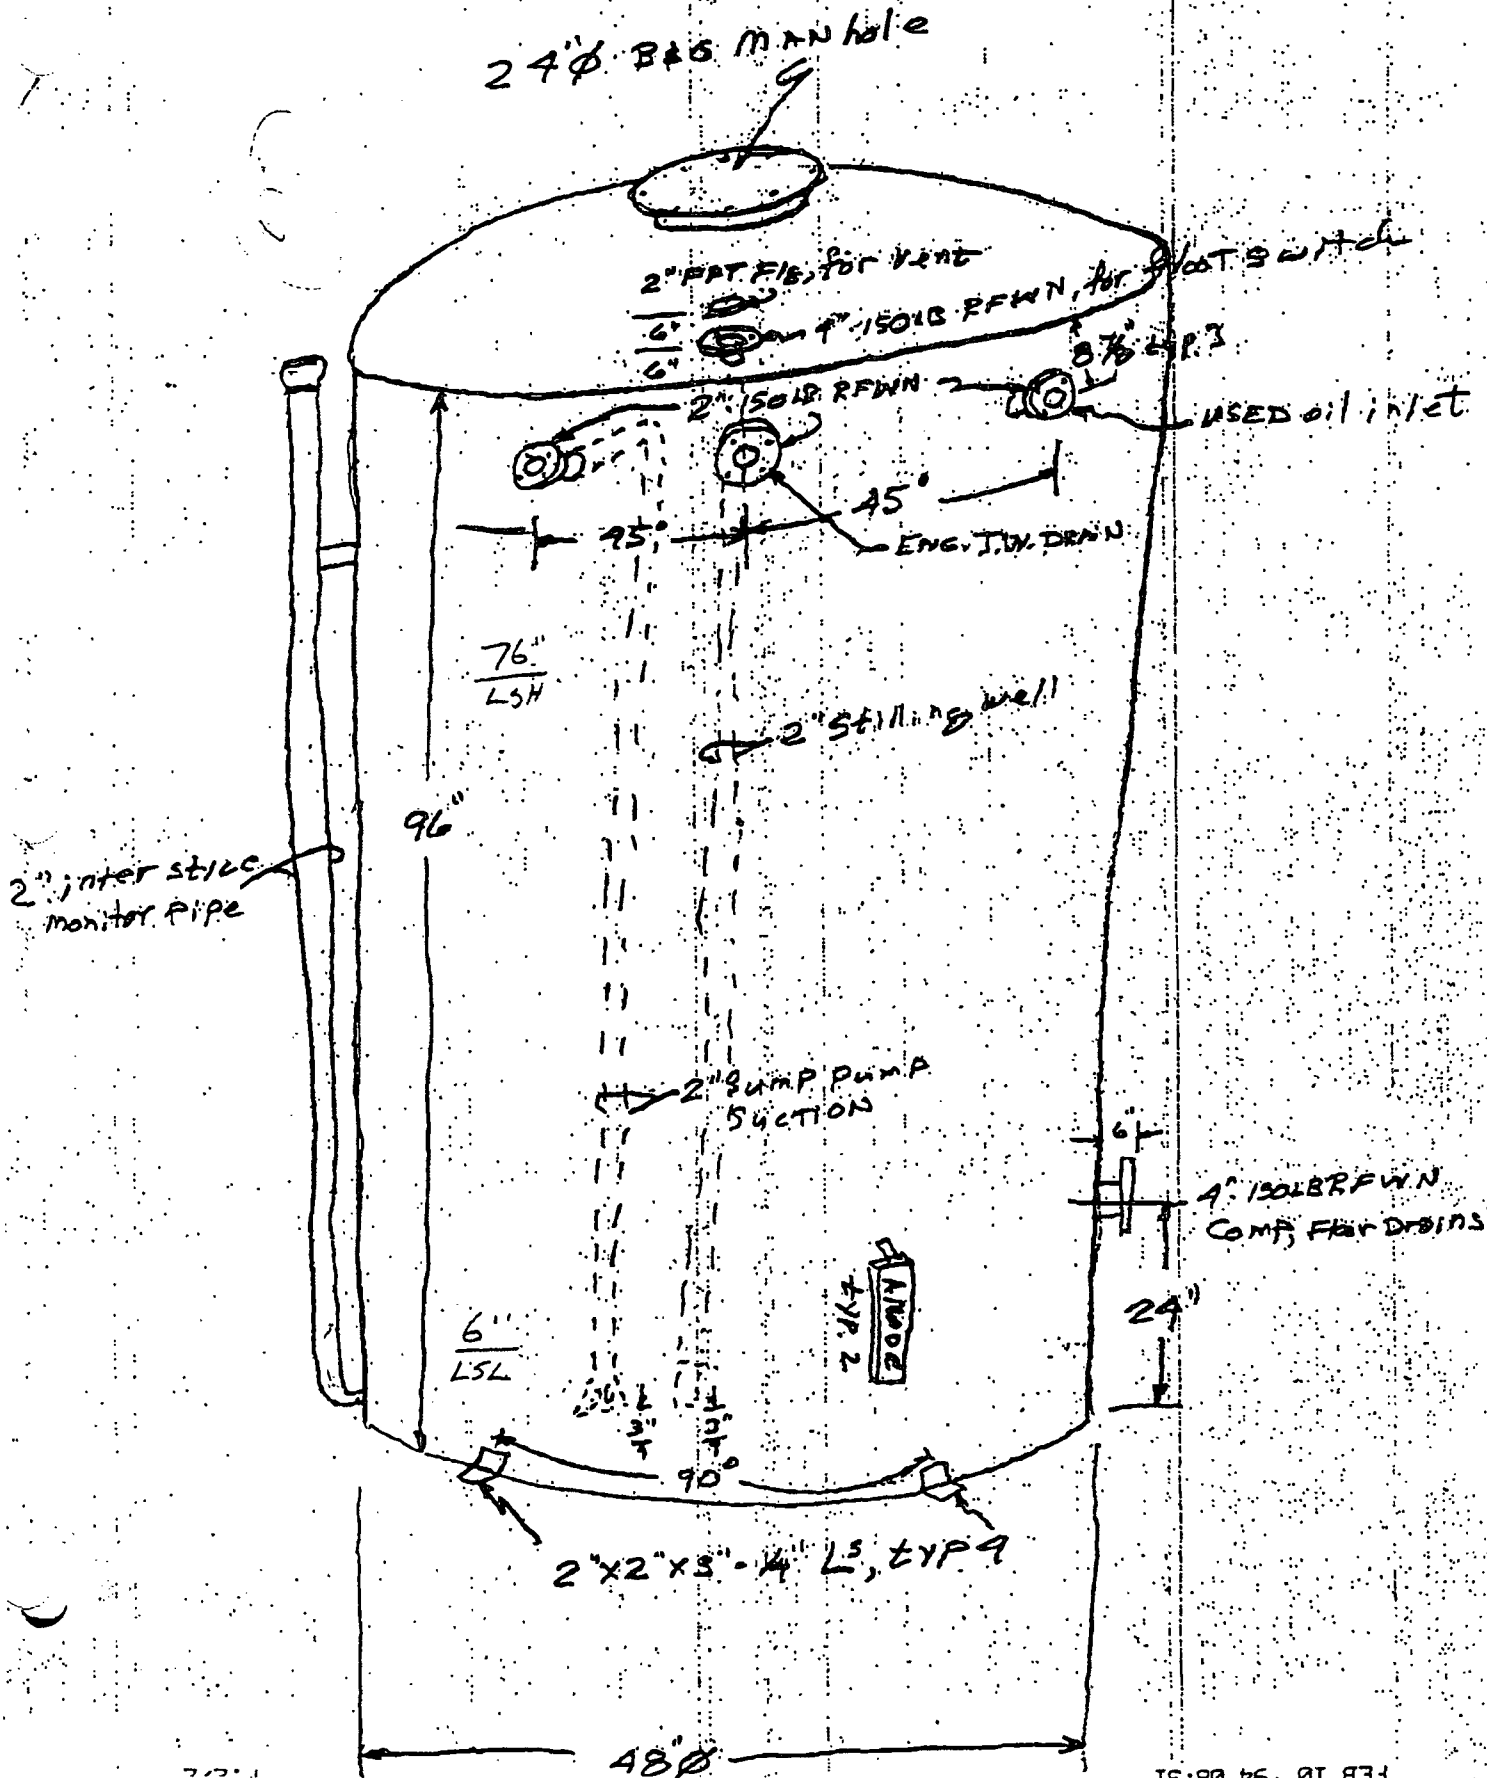 24"Ø B&G MANhole
2" FPT Flg, for Vent
6"
6"
4" 150LB RFWN, for float switch
8 7/8" typ. 3
2" 150LB RFWN
USED oil inlet
45°
45°
ENG. J.W. DRAIN
76"
LSH
2" Stilling well
96"
2" interstice
monitor pipe
2" Sump pump
SUCTION
6"
4" 150LB RFWN
Comp, Floor Drains
24"
ANODE
typ. 2
6"
LSL
3"
3"
90°
2"x2"x3"-1/4" Ls, typ 4
48"Ø
FEB 10 '94 08:51
P.2/2